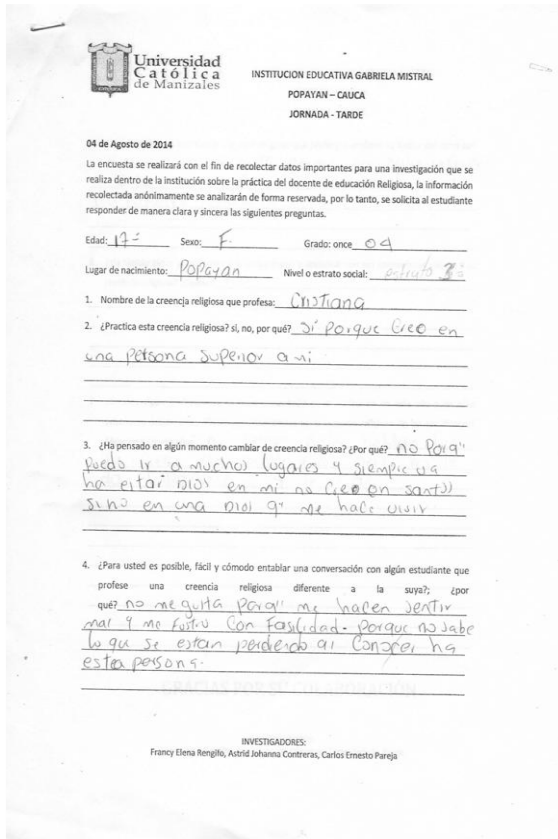 Universidad
Católica
de Manizales
INSTITUCION EDUCATIVA GABRIELA MISTRAL
POPAYAN – CAUCA
JORNADA - TARDE
04 de Agosto de 2014
La encuesta se realizará con el fin de recolectar datos importantes para una investigación que se
realiza dentro de la institución sobre la práctica del docente de educación Religiosa, la información
recolectada anónimamente se analizarán de forma reservada, por lo tanto, se solicita al estudiante
responder de manera clara y sincera las siguientes preguntas.
Edad: 17= Sexo: F. Grado: once 04
Lugar de nacimiento: Popayan Nivel o estrato social: estrato 3=
1. Nombre de la creencia religiosa que profesa: Cristiana
2. ¿Practica esta creencia religiosa? si, no, por qué? Si porque Creo en
una persona superior a mi
3. ¿Ha pensado en algún momento cambiar de creencia religiosa? ¿Por qué? no Porq"
puedo ir a muchos lugares y siempre va
ha estar Dios en mi no Creo en santos
sino en una Dios q" me hace vivir
4. ¿Para usted es posible, fácil y cómodo entablar una conversación con algún estudiante que
profese una creencia religiosa diferente a la suya?; ¿por
qué? no me gusta porq" me hacen sentir
mal y me Con Fasilidad - porque no sabe
lo que se estan perdiendo al Conocer ha
esta persona.
INVESTIGADORES:
Francy Elena Rengifo, Astrid Johanna Contreras, Carlos Ernesto Pareja